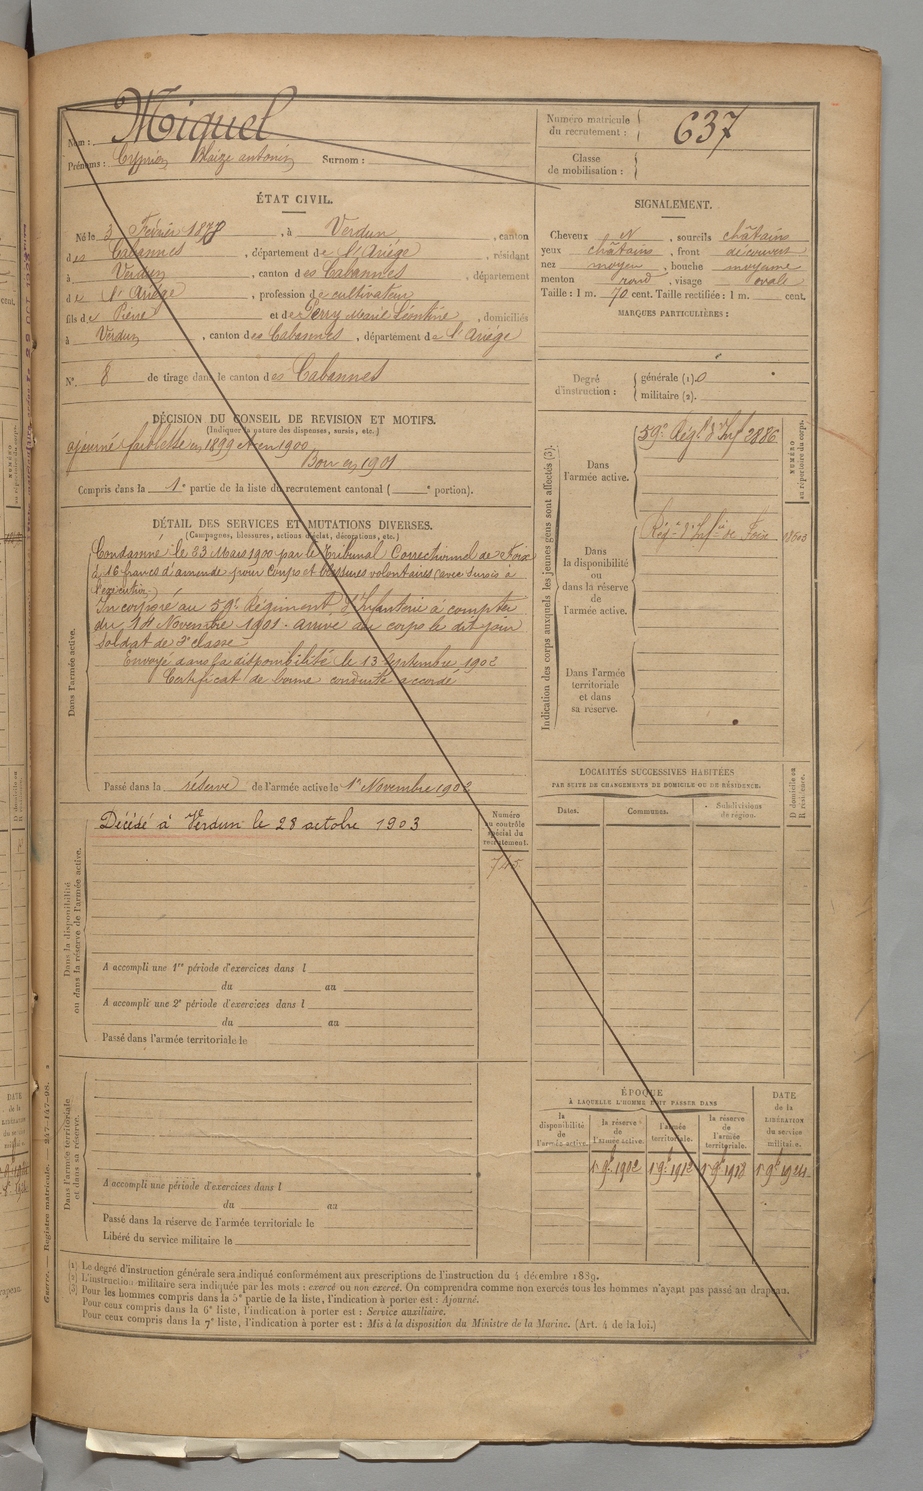 Nom : Miguel
Prénoms : Cyprien Blaize antonin Surnom :
Numéro matricule du recrutement : 637
Classe de mobilisation :
ÉTAT CIVIL.
Né le 3 Février 1878, à Verdun, canton
des Cabannes, département de l'Ariège, résidant
à Verdun, canton des Cabannes, département
de l'Ariège, profession de cultivateur
fils de Pierre et de Perry Marie Léontine, domiciliés
à Verdun, canton des Cabannes, département de l'Ariège
N° 8 de tirage dans le canton des Cabannes
SIGNALEMENT.
Cheveux N, sourcils châtains
yeux châtains, front découvert
nez moyen, bouche moyenne
menton rond, visage ovale
Taille : 1 m. 70 cent. Taille rectifiée : 1 m. cent.
MARQUES PARTICULIÈRES :
Degré d'instruction : générale (1) 0
militaire (2).
DÉCISION DU CONSEIL DE REVISION ET MOTIFS.
(Indiquer la nature des dispenses, sursis, etc.)
ajourné faiblesse en 1899 et en 1900
Bon en 1901
Compris dans la 1e partie de la liste du recrutement cantonal ( e portion).
DÉTAIL DES SERVICES ET MUTATIONS DIVERSES.
(Campagnes, blessures, actions d'éclat, décorations, etc.)
Dans l'armée active.
Condamné le 23 Mars 1900 par le Tribunal Correctionnel de Foix
à 16 francs d'amende pour Coups et blessures volontaires (avec sursis à
l'exécution)
Incorporé au 59e Régiment d'Infanterie à compter
du 14 Novembre 1901. arrivé au corps le dit jour
soldat de 2e classe.
Envoyé dans la disponibilité le 13 Septembre 1902
Certificat de bonne conduite accordé
Passé dans la réserve de l'armée active le 1er Novembre 1902
Indication des corps auxquels les jeunes gens sont affectés (3).
NUMÉRO au répertoire du corps.
Dans l'armée active.
59e Régt d'Inf 2886
Dans la disponibilité ou dans la réserve de l'armée active.
Régt d'Infie de Foix
Dans l'armée territoriale et dans sa réserve.
LOCALITÉS SUCCESSIVES HABITÉES
PAR SUITE DE CHANGEMENTS DE DOMICILE OU DE RÉSIDENCE.
Dates. Communes. Subdivisions de région. D domicile ou R résidence.
Dans la disponibilité ou dans la réserve de l'armée active.
Décédé à Verdun le 28 octobre 1903
Numéro au contrôle spécial du recrutement.
A accompli une 1re période d'exercices dans l
du au
A accompli une 2e période d'exercices dans l
du au
Passé dans l'armée territoriale le
Dans l'armée territoriale et dans sa réserve.
A accompli une période d'exercices dans l
du au
Passé dans la réserve de l'armée territoriale le
Libéré du service militaire le
ÉPOQUE
À LAQUELLE L'HOMME DOIT PASSER DANS
la disponibilité de l'armée active.
la réserve de l'armée active.
l'armée territoriale.
la réserve de l'armée territoriale.
DATE de la LIBÉRATION du service militaire.
1er 9bre 1902 1er 9bre 1912 1er 9bre 1918 1er 9bre 1924
Guerre. — Registre matricule. — 247-147-98.
(1) Le degré d'instruction générale sera indiqué conformément aux prescriptions de l'instruction du 4 décembre 1889.
(2) L'instruction militaire sera indiquée par les mots : exercé ou non exercé. On comprendra comme non exercés tous les hommes n'ayant pas passé au drapeau.
(3) Pour les hommes compris dans la 5e partie de la liste, l'indication à porter est : Ajourné.
Pour ceux compris dans la 6e liste, l'indication à porter est : Service auxiliaire.
Pour ceux compris dans la 7e liste, l'indication à porter est : Mis à la disposition du Ministre de la Marine. (Art. 4 de la loi.)